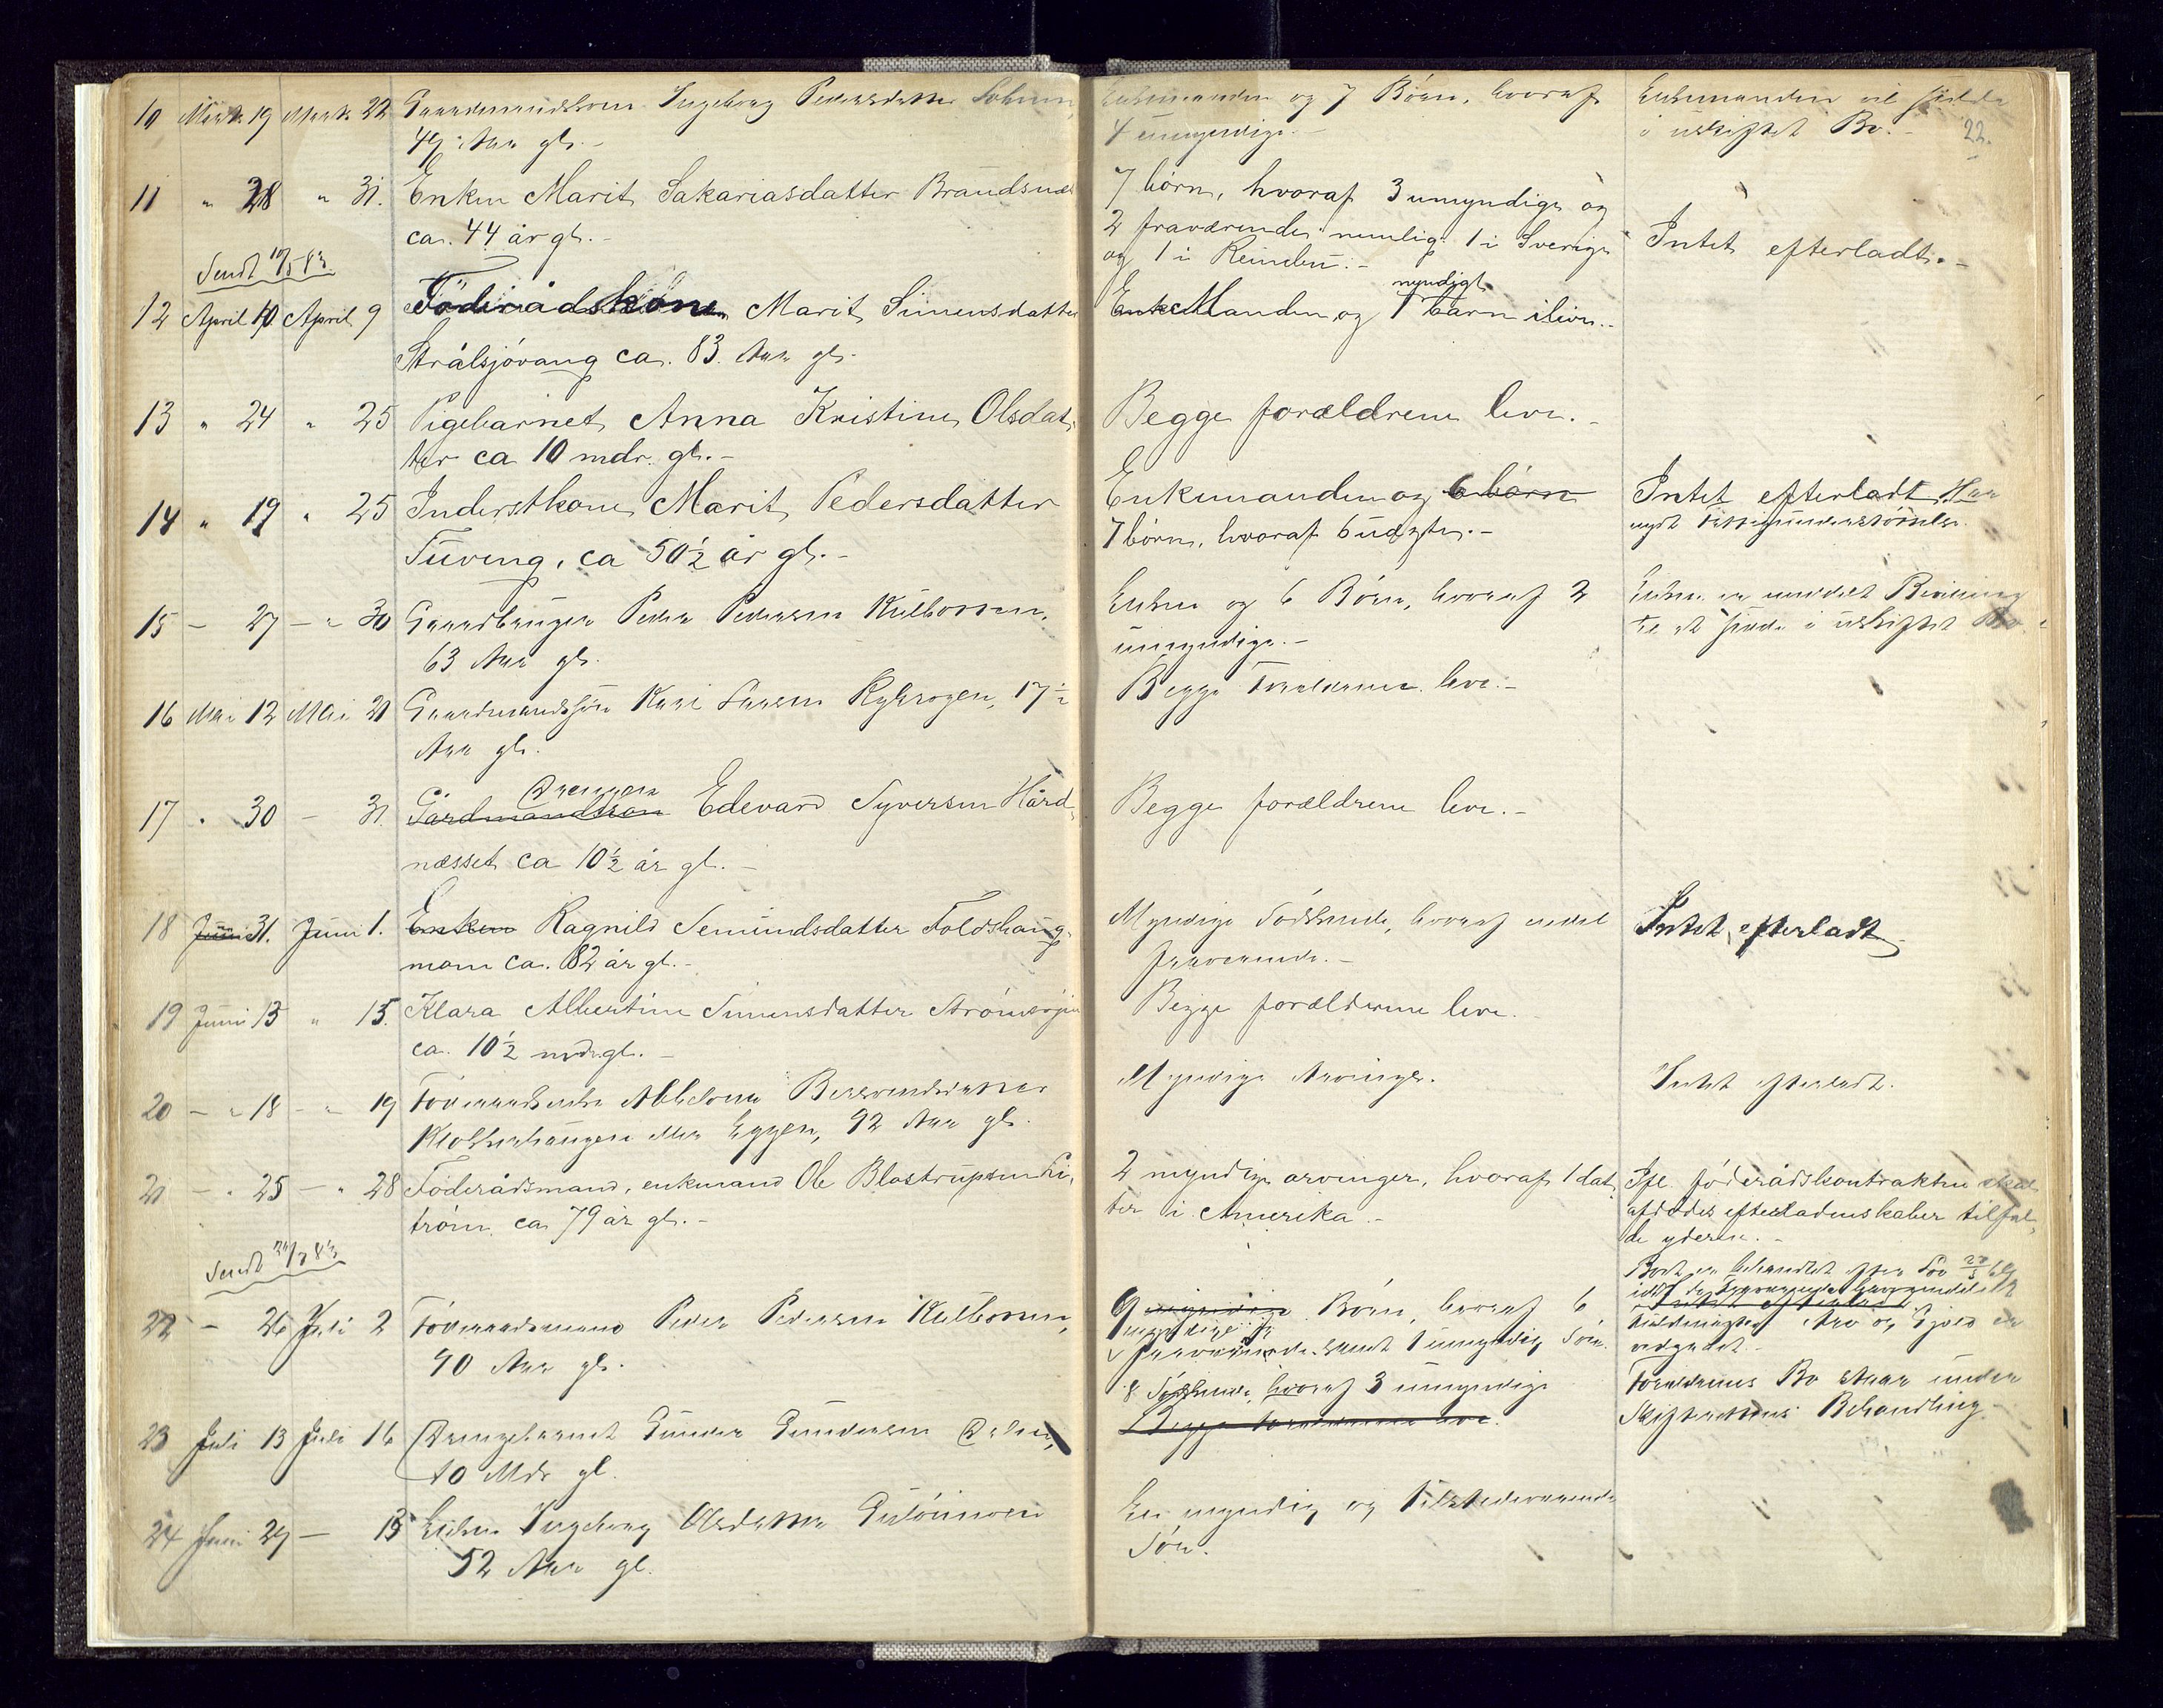 22.
10 Marts 19 Marts 22 Gaardmandskone Ingeborg Pedersdatter
49 Aar gl. -
Enkemanden og 7 Børn, hvoraf
4 umyndige. -
Enkemanden vil sidde
i uskiftet Bo. -
11 " 28 " 31. Enken Marit Sakariasdatter Brandsnæs
ca. 44 år gl. -
7 børn, hvoraf 3 umyndige og
2 fraværende nemlig 1 i Sverige
og 1 i Rendu. -
Intet efterladt. -
Sendt 10/5 83.
12 April 10 April 9 Föderådskone Marit Simensdatter
Strålsjövang ca. 83. Aar gl.
myndigt
Enke Manden og 1 barn ilive. -
13 " 24 " 25 Pigebarnet Anna Kristine Olsdat-
ter ca 10 mdr. gl. -
Begge forældrene leve. -
14 " 19 " 25 Inderstkone Marit Pedersdatter
Tuveng, ca 50 1/2 år gl. -
Enkemanden og 6 børn
7 børn, hvoraf 6 uægte. -
Intet efterladt. Har
nydt Fattigunderstöttelse.
15 - 27 - " 30 Gaardbruger Peder Pedersen Kulbotten,
63 Aar gl.
Enken og 6 Børn, hvoraf 2
umyndige. -
Enken er meddelt Bevilling
til at sidde i uskiftet Bo.
16 Mai 12 Mai 21 Gaardmandssøn Larsen 17 1/2
Aar gl.
Begge Forældrene leve. -
Drengen
17 " 30 - 31. Gårdmandssøn Edevard Syversen Hård-
næsset ca 10 1/2 år gl. -
Begge forældrene leve. -
18 Juni 31. Juni 1. Enken Ragnild Semundsdatter Foldshaug-
moen ca. 82 år gl. -
Myndige Södskende, hvoraf endel
fraværende. -
Intet efterladt
19 Juni 13 " 15. Klara Albertine Simensdatter
ca. 10 1/2 mdr. gl. -
Begge forælderne leve.
20 - " 18 - " 19 Föderaadsenke Abbelone
Klokkerhaugen eller Eggen, 92 Aar gl.
Myndige Arvinger.
Intet efterladt.
21 - " 25 - " 28 Föderådsmand, enkmand Ole Blostrupsen Li-
tröen ca 79 år gl. -
2 myndige arvinger, hvoraf 1 dat-
ter i Amerika. -
Ifl. föderådskontrakten skal
afdødes efterladenskaber tilfal-
de yderen. -
Sendt 83.
22 - 26 Juli 2 Föderaadsmand Peder Pedersen Kulbotten,
90 Aar gl.
9 myndige Børn, hvoraf 6
myndige
fraværende samt 1 umyndig Søn.
Boet er behandlet
Intet efterladt
Arv og Gjæld er
vedgaaet. -
23 Juli 13 Juli 16 Drengebarnet Gunder Gundersen
10 Mdr gl.
8 Sødskende, hvoraf 3 umyndige
Begge Forældrene leve.
Forældrenes Bo staar under
Skifterettens Behandling.
24 Juni 29 - 15 Enken Ingeborg Olsdatter
52 Aar gl.
En myndig og tilstedeværende
Søn.